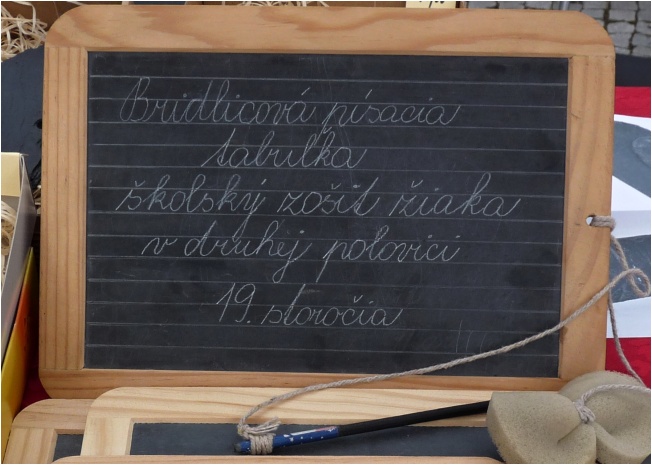 Bridlicová písacia
tabuľka
školský zošit žiaka
v druhej polovici
19. storočia